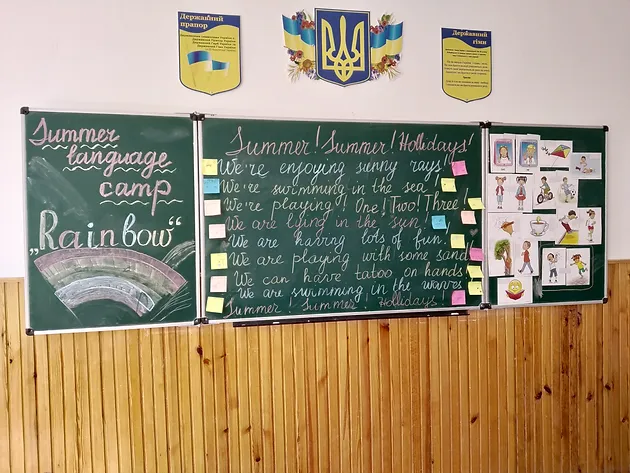 Державний
прапор
Державний
гімн
Summer
language
camp
„Rainbow“
Summer! Summer! Hollidays!
We're enjoying sunny rays!
We're swimming in the sea!
We're playing! One! Two! Three!
We are lying in the sun!
We are having lots of fun!
We are playing with some sand
We can have tatoo on hands
We are swimming in the waves
Summer! Summer! Hollidays